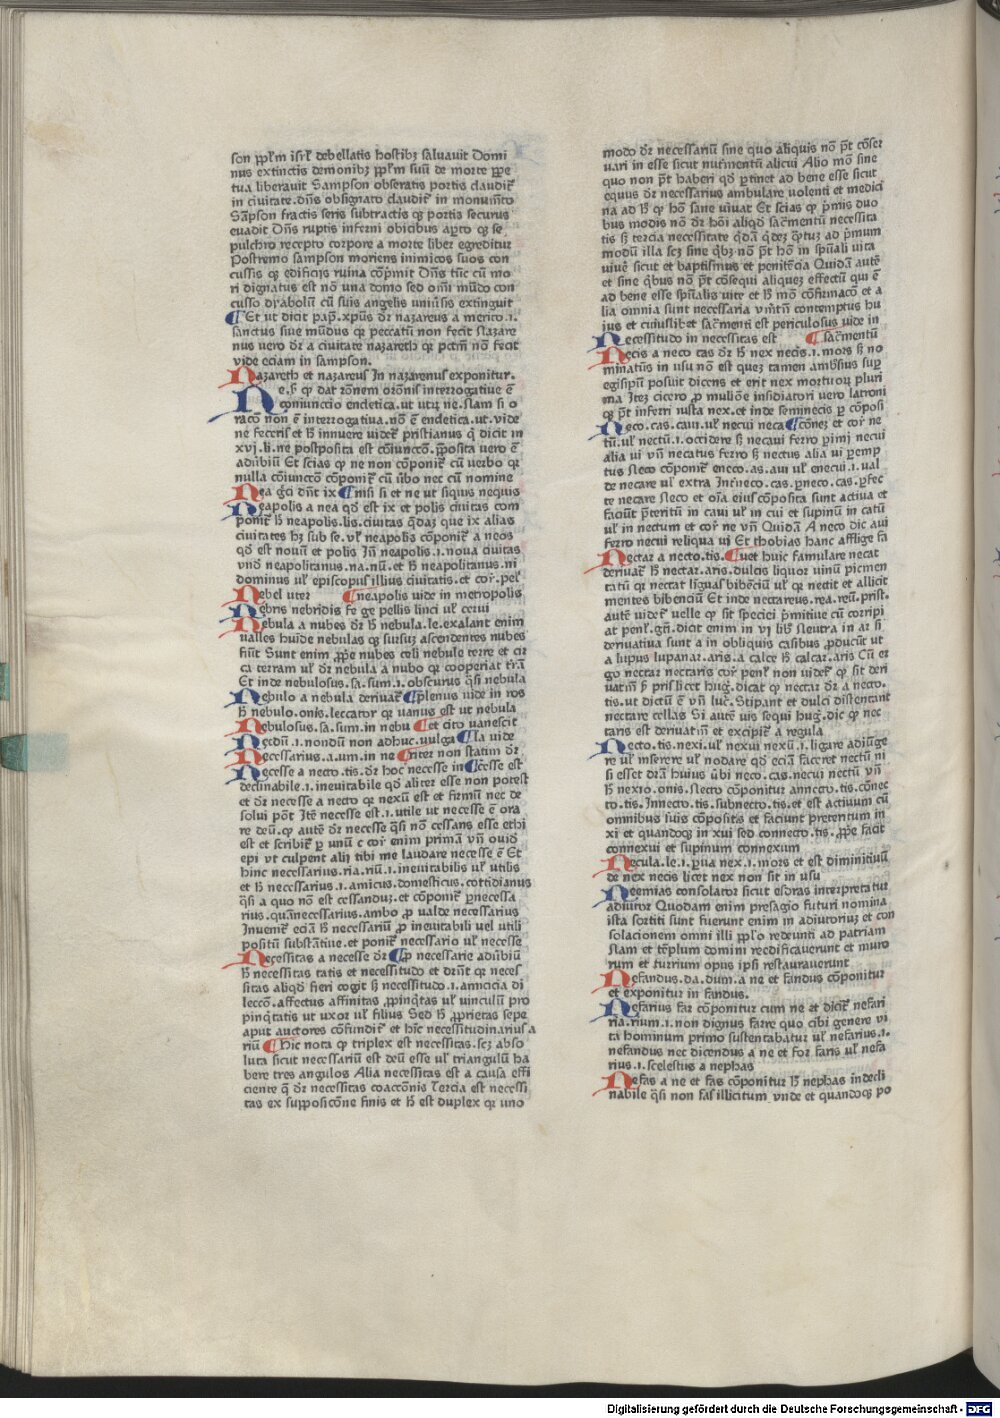 son pplm isrl debellatis hostibꝫ saluauit Domi
nus extinctis demonibꝫ pplm suū de morte ppe
tua liberauit Sampson obseratis portis claudit᷑
in ciuitate.dn̄s obsignato claudit᷑ in monum̄to
Sāpson fractis seris subtractis qꝫ portis securus
euadit Dn̄s ruptis inferni obicibus apto qꝫ se
pulchro recepto corpore a morte liber egreditur
Postremo sampson moriens inimicos suos con
cussis qꝫ edificijs ruina cōpmit Dn̄s tūc cū mo
ri dignatus est nō una domo sed om̄i mūdo con
cusso dyabolū cū suis angelis uniūsis extinguit
Et ut dicit pap.xpūs dr̄ nazareus a merito.i.
sanctus siue mūdus qꝛ peccatū non fecit Nazare
nus uero dr̄ a ciuitate nazareth qꝛ pctm̄ nō fecit
vide eciam in sampson.
Nazareth et nazareus In nazarenus exponitur.
Ne.h̄ ꝙ dat rōnem orōnis interrogatiue ē
coniunccio endetica.ut utꝝ ne.Nam si o
racō non ē interrogatiua.nō ē endetica.ut.vide
ne feceris et h̄ innuere videt᷑ pristianus q̄ dicit in
xvj.li.ne postposita est cōiunccō.pposita uero ē
adūbiū Et scias ꝙ ne non cōponit᷑ cū verbo qꝛ
nulla cōiunctō cōponit᷑ cū ūbo nec cū nomine
Nea gͨci dn̄t ix nisi si et ne ut siquis nequis
Neapolis a nea qd̄ est ix et polis ciuitas com
ponit᷑ h̄ neapolis.lis.ciuitas q̄daꝫ que ix alias
ciuitates hꝫ sub se.ul̄ neapolis cōponit᷑ a neos
qd̄ est nouū et polis Jn̄ neapolis.i.noua ciuitas
vnd̄ neapolitanus.na.nū.et h̄ neapolitanus.ni
dominus ul̄ episcopus illius ciuitatis.et cor̄.pel̄
Nebel uter neapolis vide in metropolis
Nebris nebridis fe ge pellis linci ul̄ cerui
Nebula a nubes dr̄ h̄ nebula.le.exalant enim
ualles huide nebulas qꝫ sursuꝫ ascendentes nubes
fiūt Sunt enim ppe nubes celi nebule terre et cir
ca terram ul̄ dr̄ nebula a nubo qꝛ cooperiat trā
Et inde nebulosus.sa.sum.i.obscurus q̄si nebula
Nebulo a nebula deriuat᷑ plenus vide in ros
h̄ nebulo.onis.leccator qꝛ uanus est ut nebula
Nebulosus.sa.sum.in nebu et cito vanescit
Necdū.i.nondū non adhuc.uulga la vide
Necessarius.a.um.in ne riter non statim dr̄
Necesse a necto.tis.dr̄ hoc necesse in cesse est
declinabile.i.ineuitabile qd̄ aliter esse non potest
et dr̄ necesse a necto qꝛ nexū est et firmū nec de
solui pōt Itē necesse est.i.utile ut necesse ē ora
re deū.ꝙ autē dr̄ necesse q̄si nō cessans esse ethi
est et scribit᷑ p unū c cor̄ enim primā vn̄ ouid̄
epi vt culpent alij tibi me laudare necesse ē Et
hinc necessarius.ria.riū.i.ineuitabilis ul̄ utilis
et h̄ necessarius.i.amicus.domesticus.cottidianus
q̄si a quo nō est cessanduꝫ.et cōponit᷑ pnecessa
rius.quānecessarius.ambo p valde necessarius
Inuenit᷑ eciā h̄ necessariū p ineuitabili uel utili
positū substātiue.et ponit᷑ necessario ul̄ necesse
Necessitas a necesse dr̄ p necessarie adūbiū
h̄ necessitas tatis et necessitudo et drn̄t qꝛ neces
sitas aliqd̄ fieri cogit sꝫ necessitudo.i.amicicia di
leccō.affectus affinitas ppinq̄tas ul̄ vinculū pro
pinq̄tatis ut uxor ul̄ filius Sed h̄ pprietas sepe
aput auctores cōfundit᷑ et hīc necessitudinarius a
riū hic nota ꝙ triplex est necessitas.scꝫ abso
luta sicut necessariū est deū esse ul̄ triangulū ha
bere tres angulos Alia necessitas est a causa effi
ciente q̄ dr̄ necessitas coaccōnis Tercia est necessi
tas ex supposicōne finis et h̄ est duplex qꝛ uno
modo dr̄ necessariū sine quo aliquis nō pt̄ cōser
uari in esse sicut nutmentū alicui Alio mō sine
quo non pt̄ haberi qd̄ ptinet ad bene esse sicut
equus dr̄ necessarius ambulare volenti et medici
na ad h̄ ꝙ hō sane viuat Et scias ꝙ pmis duo
bus modis nō dr̄ hōi aliqd̄ sacmentū necessita
tis sꝫ tercia necessitate q̄dā q̄deꝫ q̄tuꝫ ad pmum
modū illa scꝫ sine q̄bꝫ nō pt̄ hō in spūali uita
viuē sicut et baptismus et penitēcia Quidā autē
et sine q̄bus nō pt̄ cōsequi aliqueꝫ effectū qui ē
ad bene esse spūalis uite et h̄ mō cōfirmacō et a
lia omnia sunt necessaria vm̄tn̄ contemptus hu
ius et cuiuslibet sacmenti est periculosus vide in
Necessitudo in necessitas est sacmentū
Necis a neco cas dr̄ h̄ nex necis.i.mors sꝫ no
minatiuus in usu nō est queꝫ tamen ambsius sup
egisipū posuit dicens et erit nex mortuoꝝ pluri
ma Iteꝫ cicero p muliōe insidiatori vero latroni
qꝫ pt̄ inferri iusta nex.et inde seminecis p cōposi
Neco.cas.caui.ul̄ necui neca cōneꝫ et cor̄ ne
tū.ul̄ nectū.i.occidere sꝫ necaui ferro pimi necui
alia vi vn̄ necatus ferro sꝫ nectus alia vi pemp
tus Neco cōponit᷑ eneco.as.aui ul̄ enecui.i.ual
de necare ul̄ extra Int̄neco.cas.pneco.cas.pfec
te necare Neco et oīa eius cōposita sunt actiua et
faciūt pteritū in caui ul̄ in cui et supinū in catū
ul̄ in nectum et cor̄ ne vn̄ Quidā A neco dic aui
ferro necui reliqua ui Et thobias hanc afflige fa
Nectar a necto.tis. uet huic famulare necat
deriuat᷑ h̄ nectar.aris.dulcis liquor vinū picmen
tatū qꝛ nectat liguas bibēciū ul̄ qꝛ nectit et allicit
mentes bibenciū Et inde nectareus.rea.reū.prist.
autē videt᷑ velle ꝙ sit speciei pmitiue cū corripi
at penl̄.gn̄.dicit enim in vj lib̄ Neutra in ar si
deriuatiua sunt a in obliquis casibus pducūt ut
a lupus lupanar.aris.a calce h̄ calcar.aris Cū er
go nectar nectaris cor̄ penl̄ non videt᷑ ꝙ sit deri
uatiū h̄ prisl licet hug.dicat ꝙ nectar dr̄ a necto.
tis.ut dictū ē vn̄ luc̄.Stipant et dulci distentant
nectare cellas Si autē uis sequi hug.dic ꝙ nec
taris est deriuatiū et excipit᷑ a regula
Necto.tis.nexi.ul̄ nexui nexū.i.ligare adiūge
re ul̄ inserere ul̄ nodare qd̄ eciā faceret nectū ni
si esset drā huius ūbi neco.cas.necui nectū vn̄
h̄ nexio.onis.Necto cōponitur annecto.tis.cōnec
to.tis.Innecto.tis.subnecto.tis.et est actiuum cū
omnibus suis cōpositis et faciunt preteritum in
xi et quandoqꝫ in xui sed connecto.tis.ppe facit
connexui et supinum connexum
Necula.le.i.pua nex.i.mors et est diminitiuū
de nex necis licet nex non sit in usu
Neemias consolator sicut esdras interpretatur
adiutor Quodam enim presagio futuri nomina
ista sortiti sunt fuerunt enim in adiutoriuꝫ et con
solacionem omni illi pplo redeunti ad patriam
Nam et tēplum domini reedificauerunt et muro
rum et turrium opus ipsi restaurauerunt
Nefandus.da.dum.a ne et fandus cōponitur
et exponitur in fandus.
Nefarius far cōponitur cum ne et dicit᷑ nefari
ria.rium.i.non dignus farre quo cibi genere vi
ta hominum primo sustentabatur ul̄ nefarius.i.
nefandus nec dicendus a ne et for faris ul̄ nefa
rius.i.scelestus a nephas
Nefas a ne et fas cōponitur h̄ nephas indecli
nabile q̄si non fas illicitum vnde et quandoqꝫ po
Digitalisierung gefördert durch die Deutsche Forschungsgemeinschaft - DFG